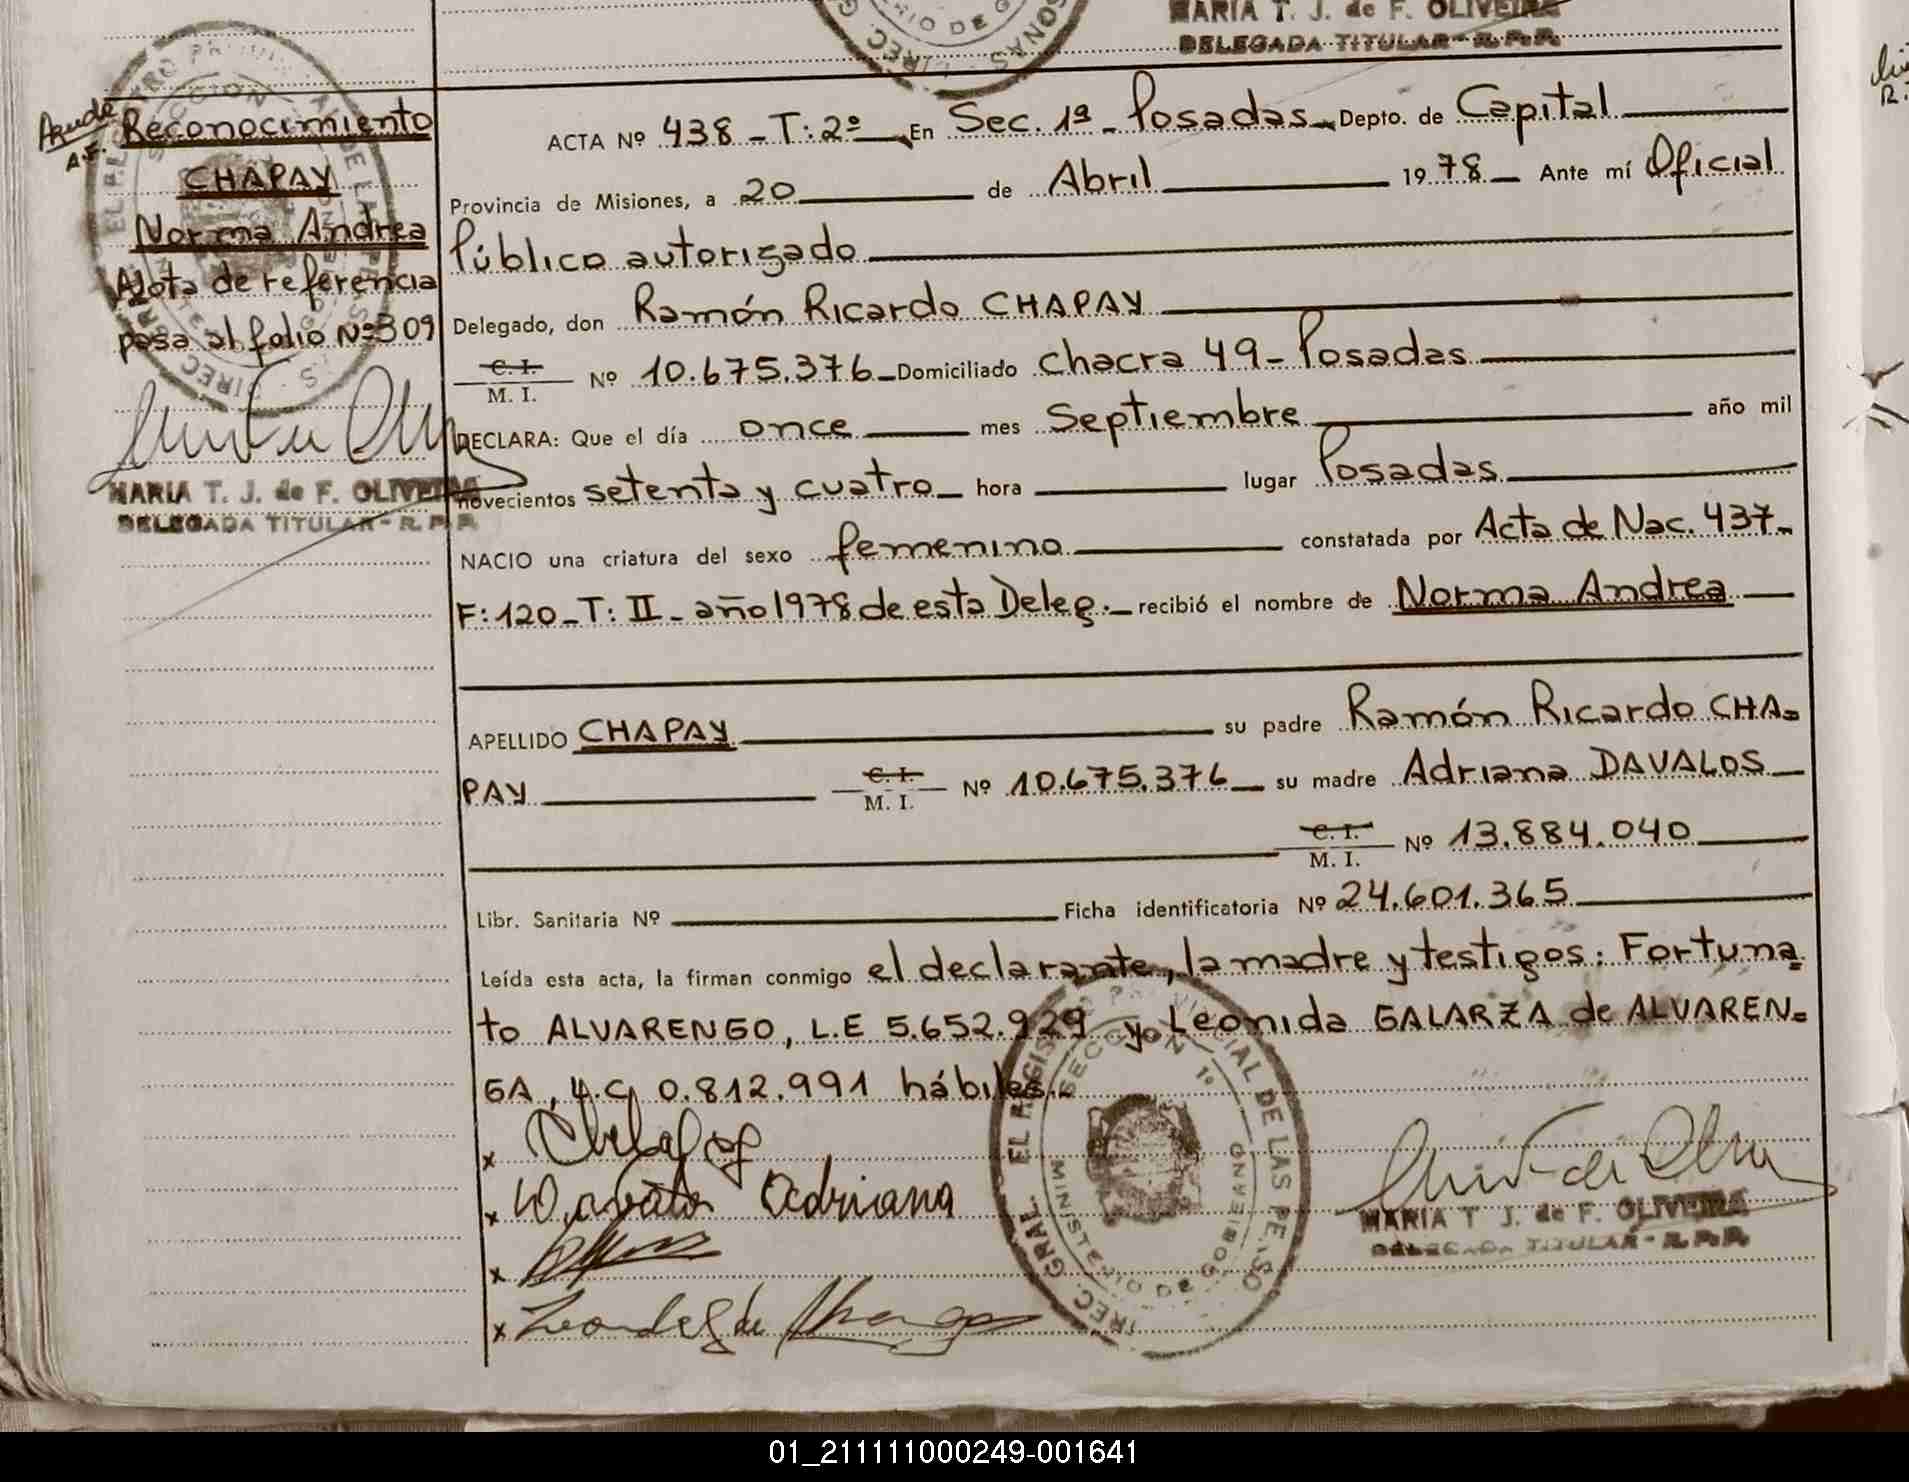 MARIA T. J. de F. OLIVEIRA
DELEGADA TITULAR - R. P. P.
Reconocimiento
CHAPAY
Norma Andrea
Nota de referencia
pasa al folio Nº 309
MARIA T. J. de F. OLIVEIRA
DELEGADA TITULAR - R. P. P.
ACTA Nº 438 - T: 2º En Sec. 1ª - Posadas Depto. de Capital
Provincia de Misiones, a 20 de Abril 1978 Ante mí Oficial
Público autorizado
Delegado, don Ramón Ricardo CHAPAY
C. I.
M. I. Nº 10.675.376 Domiciliado chacra 49 - Posadas
DECLARA: Que el día once mes Septiembre año mil
novecientos setenta y cuatro hora lugar Posadas
NACIO una criatura del sexo femenino constatada por Acta de Nac. 437-
F: 120 - T: II - año 1978 de esta Deleg. recibió el nombre de Norma Andrea
APELLIDO CHAPAY su padre Ramón Ricardo CHA=
PAY C. I.
M. I. Nº 10.675.376 su madre Adriana DAVALOS
C. I.
M. I. Nº 13.884.040
Libr. Sanitaria Nº Ficha identificatoria Nº 24.601.365
Leída esta acta, la firman conmigo el declarante, la madre y testigos: Fortuna=
to ALVARENGO, L.E 5.652.929 y Leonida GALARZA de ALVAREN=
GA, L.C 0.812.991 hábiles.-
x
x Adriana
x
x
MARIA T J. de F. OLIVEIRA
DELEGADA TITULAR - R. P. P.
SECCION 1º
MINISTERIO DE GOBIERNO
01_211111000249-001641